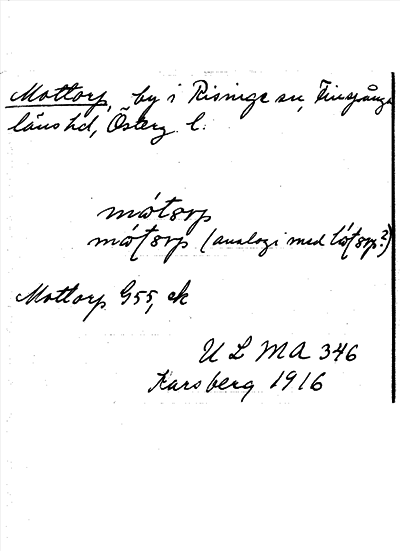 Mottorp, by i Risinge sn, Finspånga
läns hd, Österg. l.
mótorp
mótorp (analogi med tótorp?)
Mottorp G55, ek
ULMA 346
Karsberg 1916